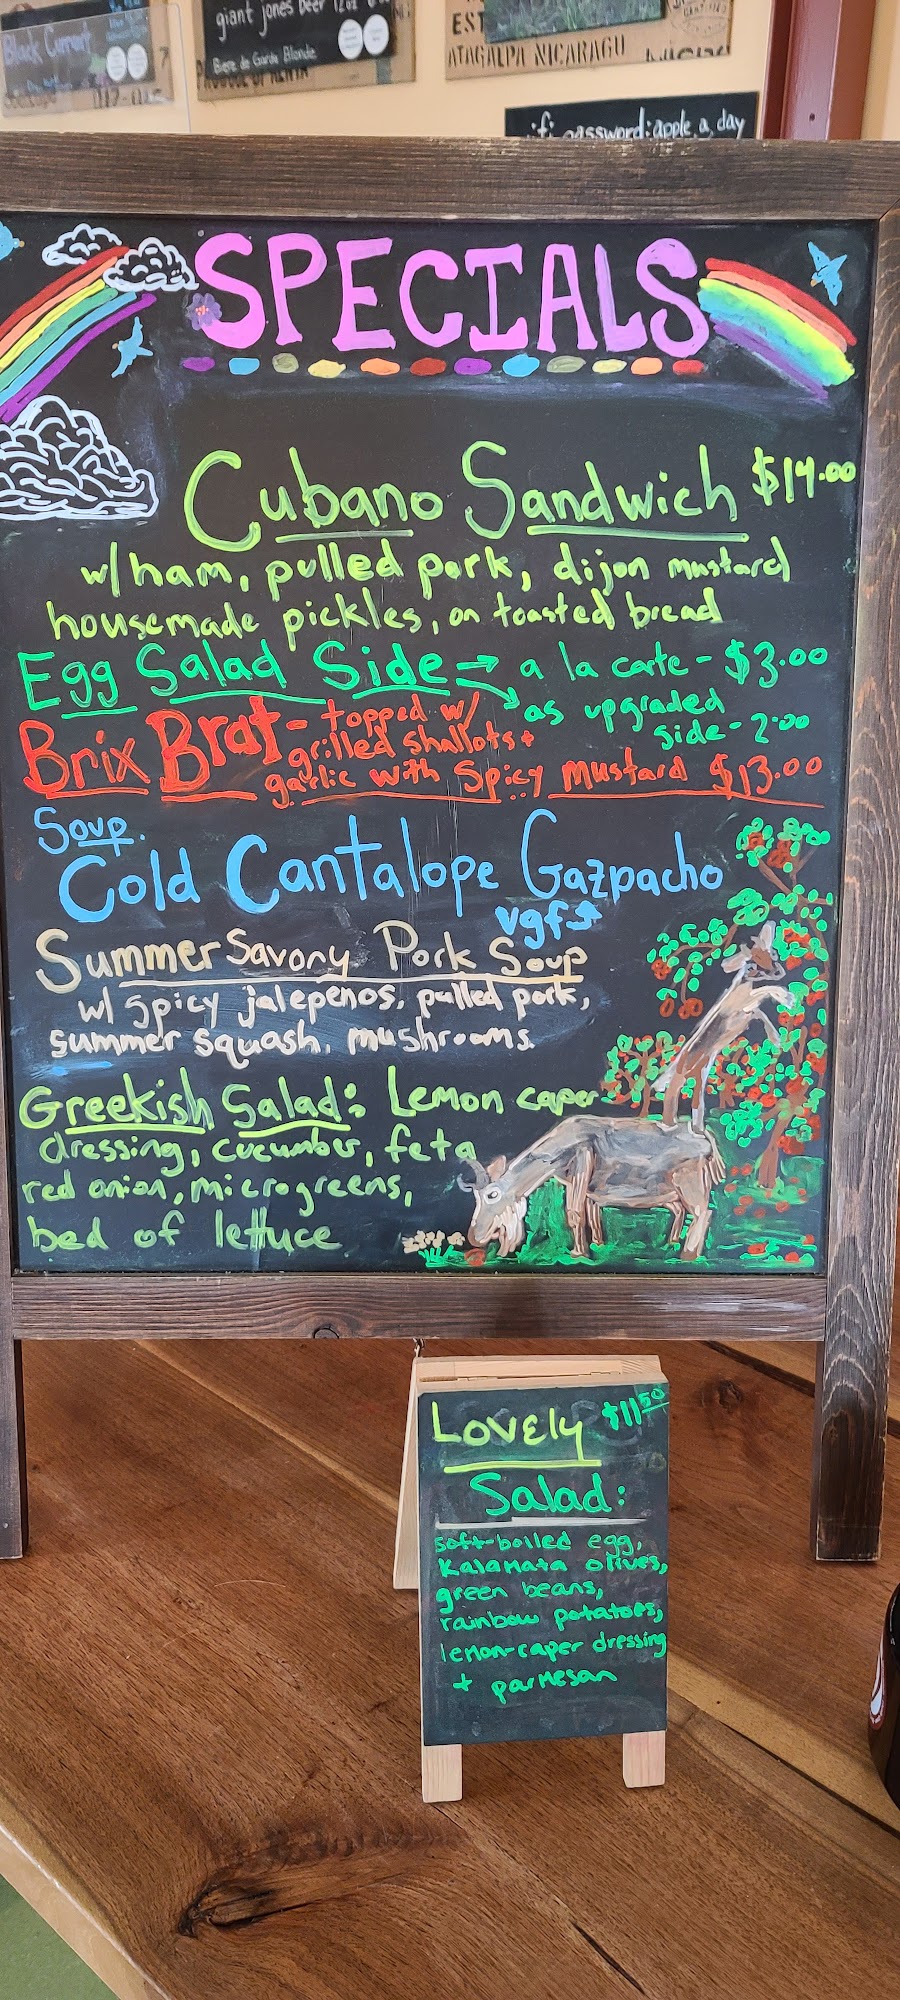 Black Currant
giant jones beer 12oz
Biere de Garde Blonde
EST
ATAGALPA NICARAGU
password: apple_a_day
SPECIALS
Cubano Sandwich $14.00
w/ ham, pulled pork, dijon mustard
housemade pickles, on toasted bread
Egg Salad Side → a la carte - $3.00
as upgraded
side - 2.00
Brix Brat - topped w/
grilled shallots +
garlic with Spicy Mustard $13.00
Soup.
Cold Cantalope Gazpacho
vgf
Summer Savory Pork Soup
w/ spicy jalepenos, pulled pork,
summer squash, mushrooms.
Greekish Salad: Lemon caper
dressing, cucumber, feta
red onion, microgreens,
bed of lettuce
Lovely $11.50
Salad:
soft-boiled egg,
Kalamata olives,
green beans,
rainbow potatoes,
lemon-caper dressing
+ parmesan